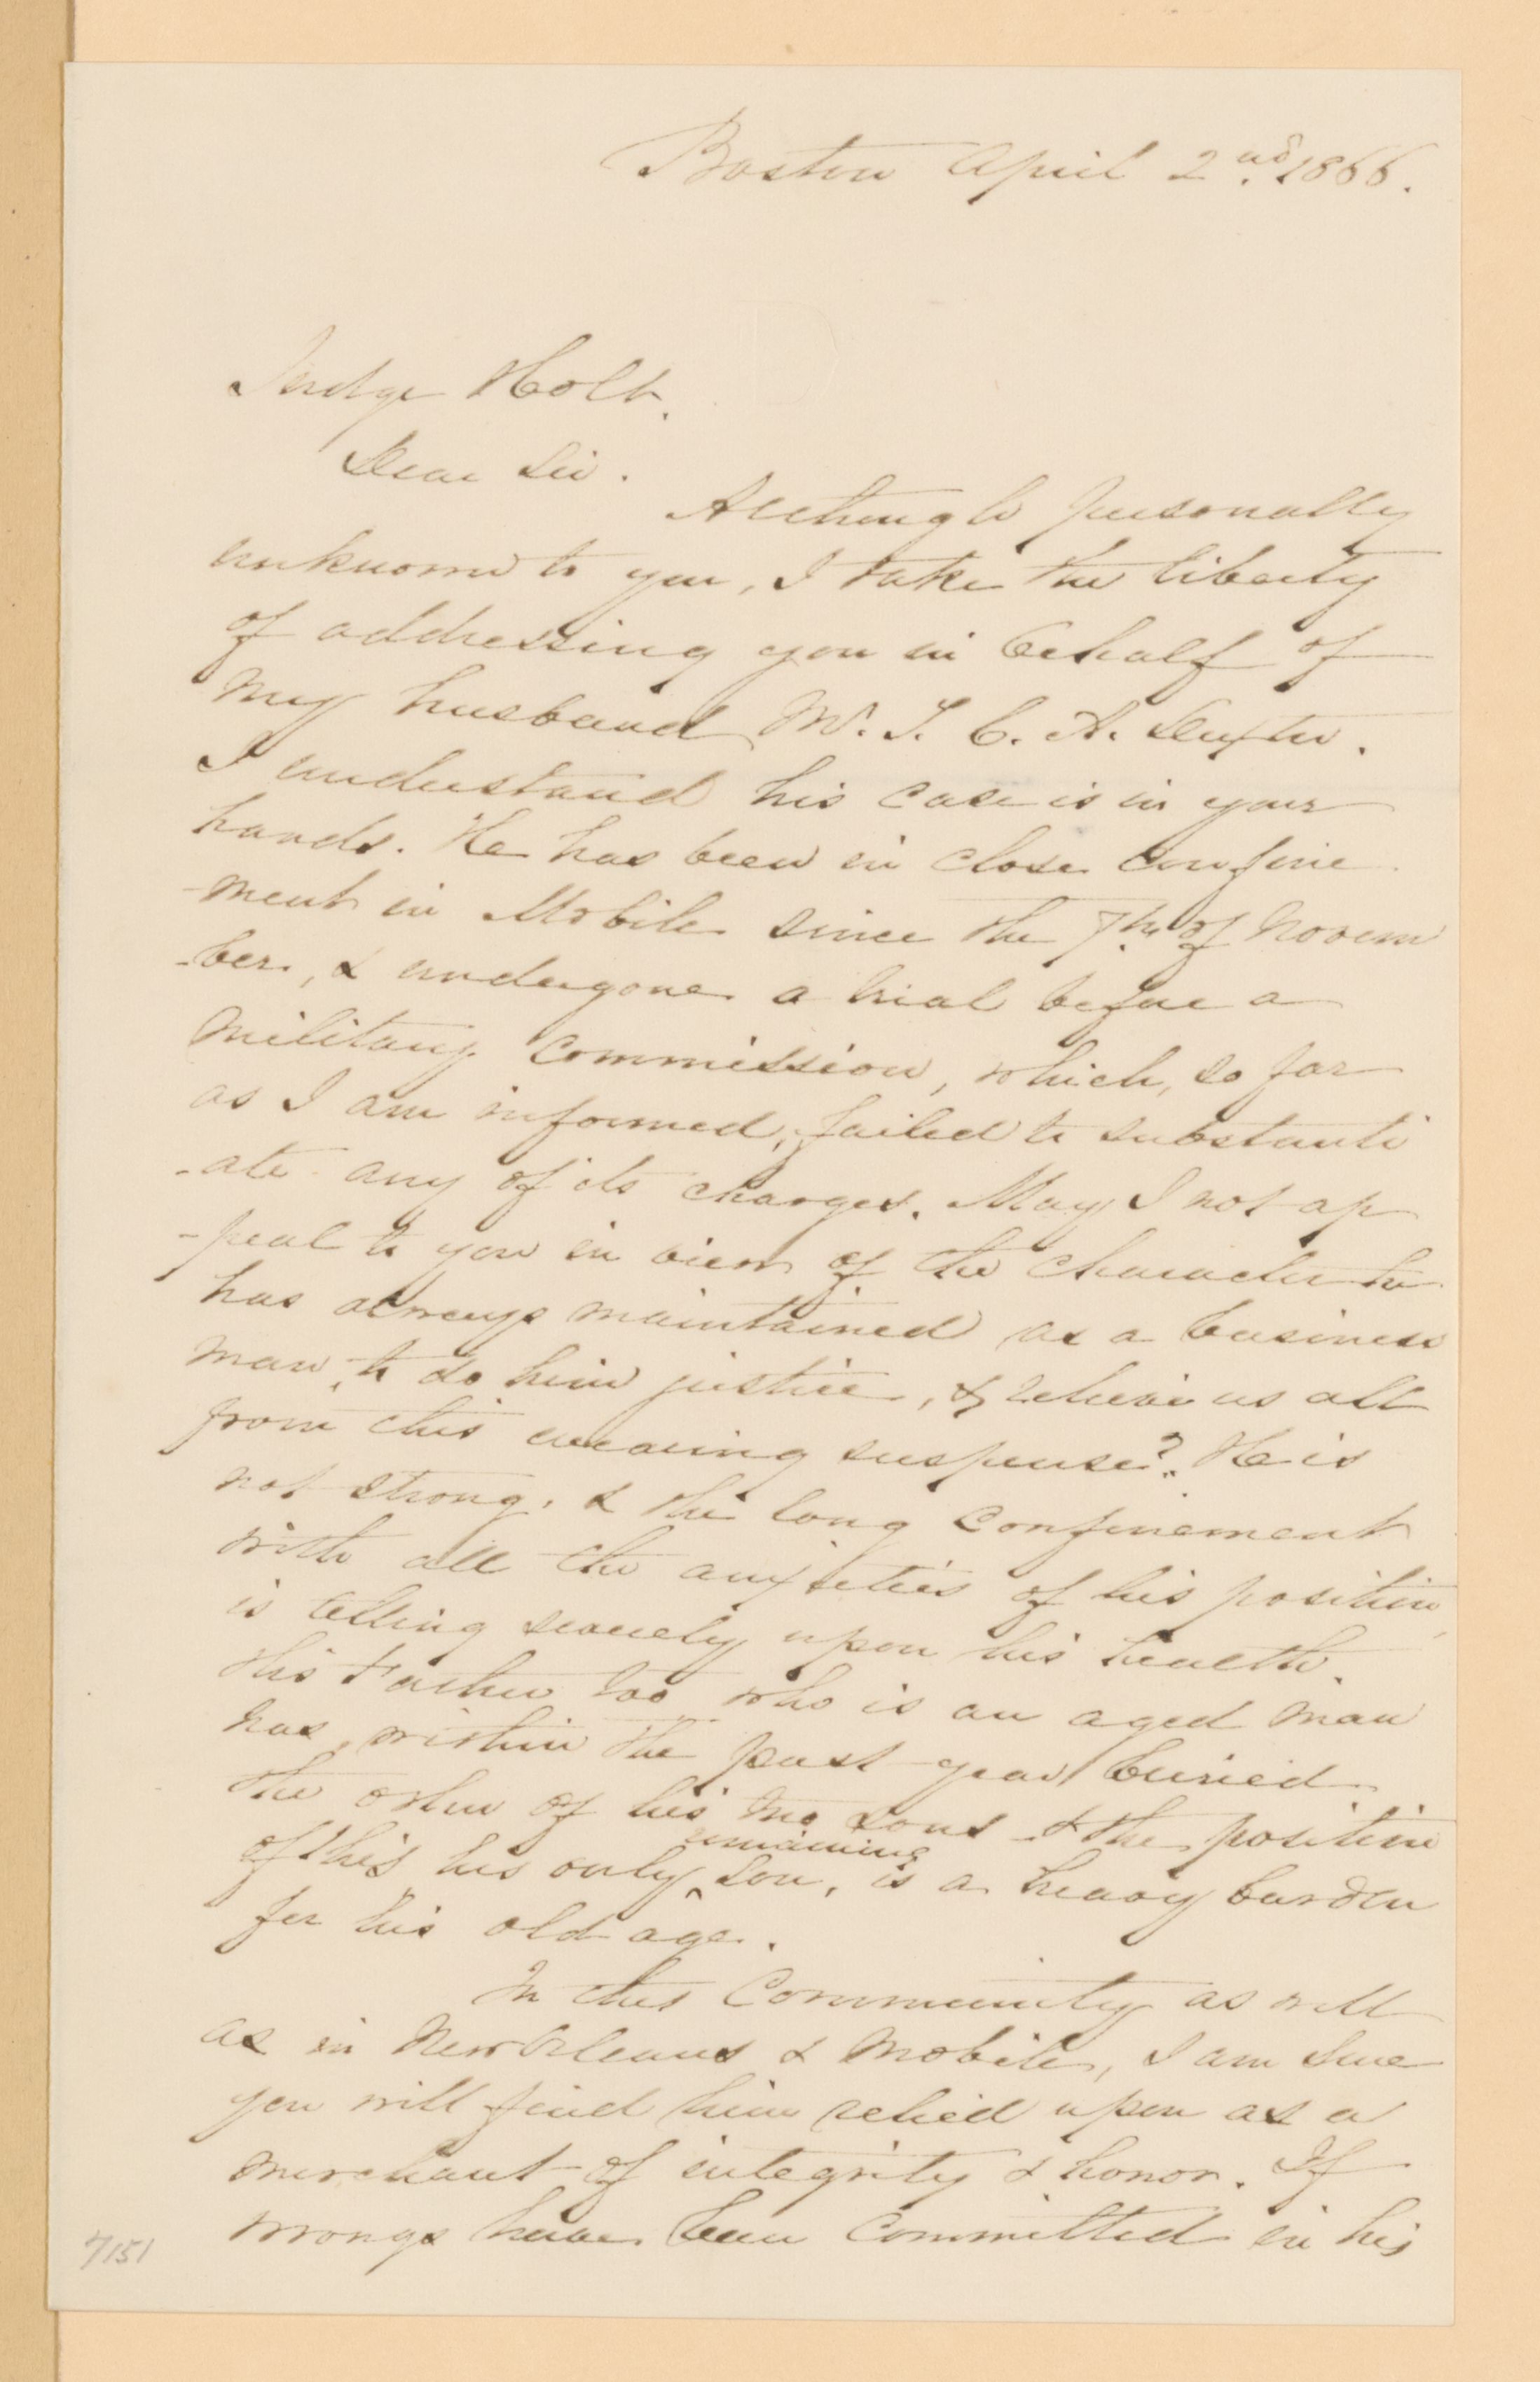 Boston April 2nd. 1866.
Judge Holt.
Dear Sir.
Although personally
unknown to you, I take the liberty
of addressing you in behalf of
my husband Mr. T. C. A. Dexter.
I understand his case is in your
hands. He has been in close confine
-ment in Mobile since the 7th. of Novem
-ber, & undergone a trial before a
Military Commission, which, so far
as I am informed, failed to substanti
-ate any of its charges. May I not ap
-peal to you in view of the character he
has always maintained as a business
man, to do him justice, & relieve us all
from this wearing suspense? He is
not strong, & the long confinement
with all the anxieties of his position
is telling severely upon his health.
His Father too who is an aged man
has, within the past year buried
the other of his two sons & the position
of this, his only remaining son, is a heavy burden
for his old age.
In this Community as well
as in New Orleans & Mobile, I am sure
you will find him relied upon as a
merchant of integrity & honor. If
wrongs have been committed in his
7151